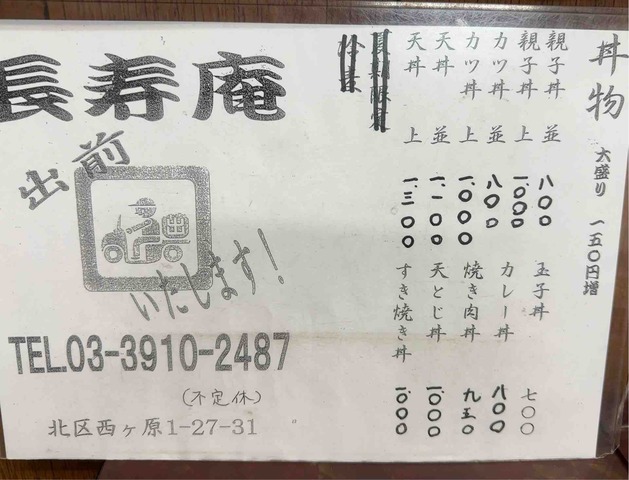 丼物 大盛り 一五〇円増
親子丼 並 八〇〇
親子丼 上 一、〇〇〇
カツ丼 並 八〇〇
カツ丼 上 一、〇〇〇
天丼 並 一、一〇〇
天丼 上 一、三〇〇
玉子丼 七〇〇
カレー丼 八〇〇
焼き肉丼 九五〇
天とじ丼 一、〇〇〇
すき焼き丼 一、〇〇〇
長寿庵
出前
いたします!
TEL.03-3910-2487
(不定休)
北区西ヶ原1-27-31